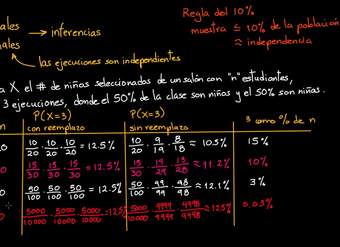 Regla del 10%
ales → inferencias
muestra ≤ 10% de la población
ales
≈ independencia
las ejecuciones son independientes
a X el # de niñas seleccionadas de un salón con "n" estudiantes,
3 ejecuciones, donde el 50% de la clase son niñas y el 50% son niños.
P(X=3) P(X=3)
n con reemplazo sin reemplazo 3 como % de n
0 10/20 · 10/20 · 10/20 = 12.5% 10/20 · 9/19 · 8/18 ≈ 10.5% 15%
0 15/30 · 15/30 · 15/30 = 12.5% 15/30 · 14/29 · 13/28 ≈ 11.2% 10%
0 50/100 · 50/100 · 50/100 = 12.5% 50/100 · 49/99 · 48/98 ≈ 12.1% 3%
0 5000/10000 · 5000/10000 · 5000/10000 = 12.5% 5000/10000 · 4999/9999 · 4998/9998 ≈ 12.5% 0.03%